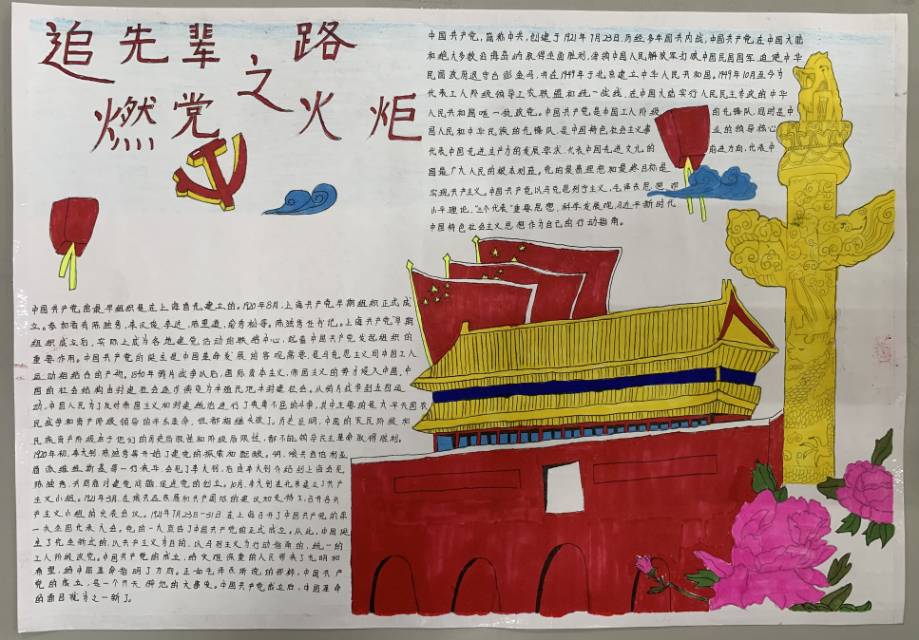 追先辈之路
燃党之火炬
中国共产党,简称中共,创建于1921年7月23日,历经多年国共内战,中国共产党在中国大陆
和绝大多数沿海岛屿取得全面胜利,使得中国人民解放军打败中国民国国军,迫使中华
民国政府退守台部金马,并在1949年于北京建立中华人民共和国。1949年10月至今
代表工人阶级领导工农联盟和统一战线,在中国大陆实行人民民主专政的中华
人民共和国唯一执政党。中国共产党是中国工人阶级 的先锋队,同时是中
国人民和中华民族的先锋队,是中国特色社会主义事 业的领导核心
代表中国先进生产力的发展要求,代表中国先进文化的 前进方向,代表中
国最广大人民的根本利益。党的最高理想和最终目标是
实现共产主义。中国共产党以马克思列宁主义,毛泽东思想,邓
小平理论,“三个代表”重要思想,科学发展观,习近平新时代
中国特色社会主义思想作为自己的行动指南。
中国共产党的最早组织是在上海首先建立的。1920年8月,上海共产党早期组织正式成
立。参加者有陈独秀、李汉俊、李达、陈望道、俞秀松等。陈独秀任书记。上海共产党早期
组织成立后,实际上成为各地建党活动的联络中心,起着中国共产党发起组织的
重要作用。中国共产党的诞生是中国革命发展的客观需要,是马克思主义同中国工人
运动相结合的产物。1840年鸦片战争以后,国际资本主义,帝国主义的势力侵入中国,中
国的社会结构由封建社会逐步演变为半殖民地半封建社会。从鸦片战争到五四运
动,中国人民为了反对帝国主义和封建统治进行了英勇不屈的斗争,其中主要的是太平天国农
民战争和资产阶级领导的辛亥革命,但都相继失败了。历史证明,中国的农民阶级和
民族资产阶级由于他们的历史局限性和阶级局限性,都不能领导民主革命取得胜利。
1920年初,李大钊、陈独秀等开始了建党的探索和酝酿。

产主义小组。
产主义小组的代表会议。1921年7月23日—31日在上海召开了中国共产党的第
一次全国代表大会。党的一大宣告了中国共产党的正式成立。从此,中国诞
生了完全新式的,以共产主义为目的,以马列主义为行动指南的,统一的
工人阶级政党。中国共产党的成立,给灾难深重的人民带来了光明和
希望,给中国革命指明了方向。正如毛泽东所说的那样,中国共产
党的成立,是一个开天辟地的大事变。中国共产党成立后,中国革命
的面目就为之一新了。